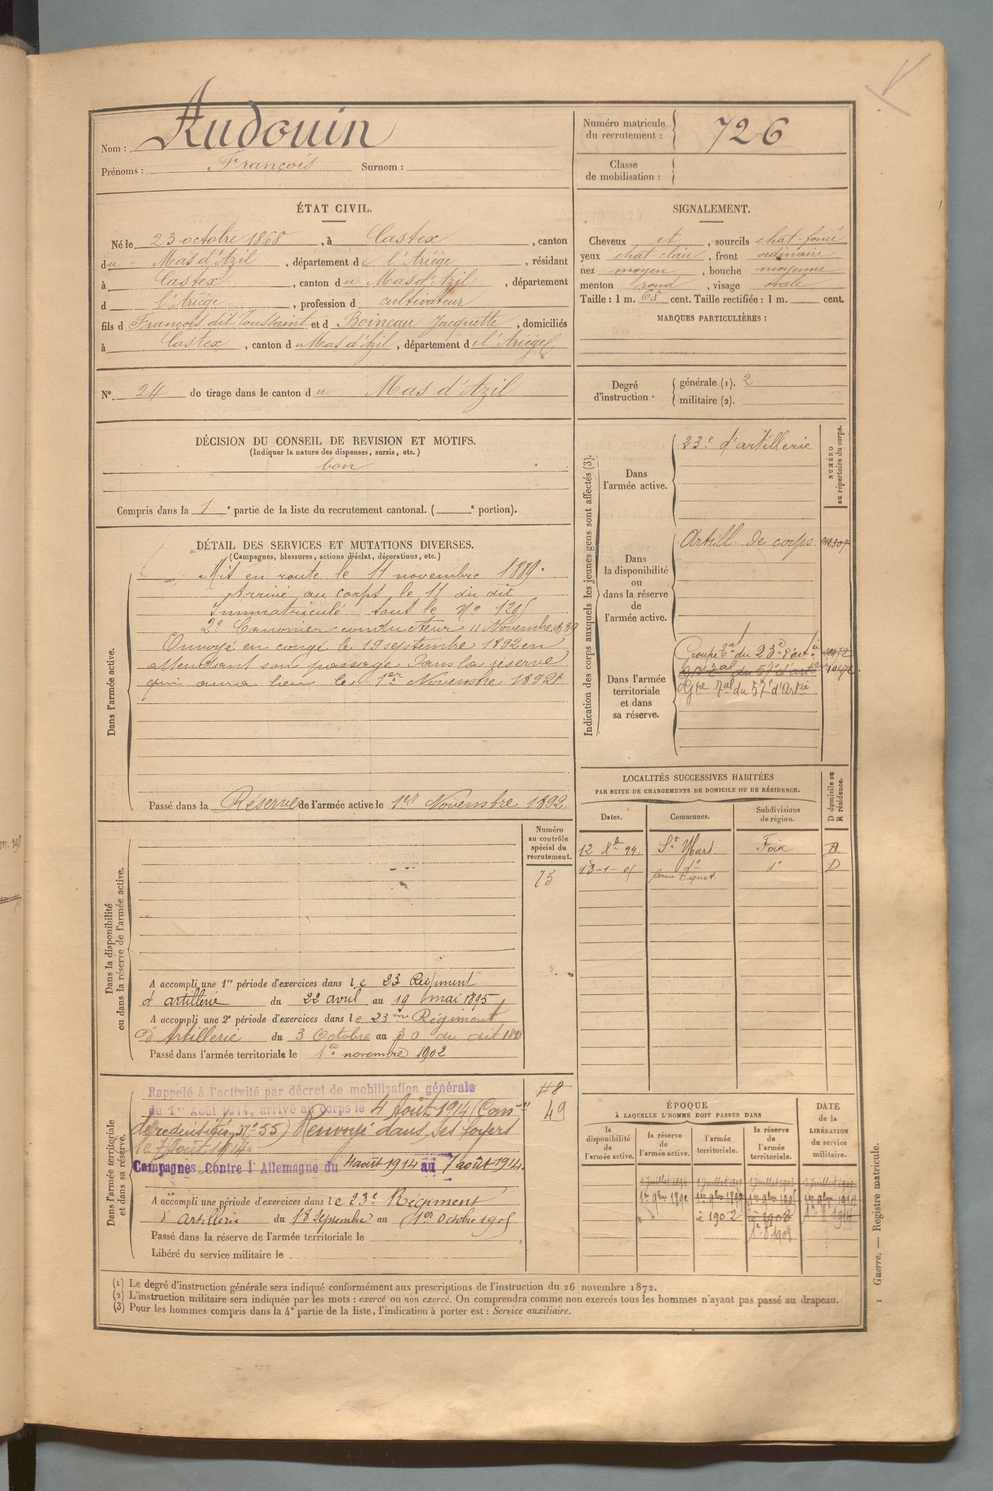 Nom : Audouin
Prénoms : François Surnom :
Numéro matricule du recrutement : 726
Classe de mobilisation :
ÉTAT CIVIL.
Né le 23 octobre 1868, à Castex, canton
du Mas d'Azil, département de l'Ariège, résidant
à Castex, canton du Mas d'Azil, département
d l'Ariège, profession d cultivateur
fils d François dit Toussaint et d Boineau Jacquette, domiciliés
à Castex, canton du Mas d'Azil, département de l'Ariège
N° 24 de tirage dans le canton du Mas d'Azil
DÉCISION DU CONSEIL DE REVISION ET MOTIFS.
(Indiquer la nature des dispenses, sursis, etc.)
bon
Compris dans la 1e partie de la liste du recrutement cantonal. ( e portion).
SIGNALEMENT.
Cheveux et, sourcils chat-foncé
yeux chat-clair, front ordinaire
nez moyen, bouche moyenne
menton rond, visage ovale
Taille : 1 m. 68 cent. Taille rectifiée : 1 m. cent.
MARQUES PARTICULIÈRES :
Degré d'instruction.
générale (1). 2
militaire (2).
DÉTAIL DES SERVICES ET MUTATIONS DIVERSES.
(Campagnes, blessures, actions d'éclat, décorations, etc.)
Dans l'armée active.
Mis en route le 11 novembre 1889.
Arrivé au corps le 11 du dit
Immatriculé sous le N°
2e Canonnier conducteur 11 Novembre 1889
Envoyé en congé le 19 septembre 1892 en
attendant son passage dans la réserve
qui aura lieu le 1er Novembre 1892
Passé dans la Réserve de l'armée active le 1er Novembre 1892
Indication des corps auxquels les jeunes gens sont affectés (3).
NUMÉRO au répertoire du corps.
Dans l'armée active.
23e d'artillerie
Dans la disponibilité ou dans la réserve de l'armée active.
Artill. de corps
Dans l'armée territoriale et dans sa réserve.
Gpe tal du 57e d'Artie
LOCALITÉS SUCCESSIVES HABITÉES
PAR SUITE DE CHANGEMENTS DE DOMICILE OU DE RÉSIDENCE.
Dates. Communes. Subdivisions de région. D domicile ou R résidence.
12 Xbre 99. St Ybars Foix
do do D
Dans la disponibilité ou dans la réserve de l'armée active.
Numéro au contrôle spécial du recrutement.
75
A accompli une 1re période d'exercices dans le 23 Régiment
d'artillerie du 22 avril au 19 mai 1895
A accompli une 2e période d'exercices dans le 23me Régiment
d'Artillerie du 3 Octobre au 30 du dit 1898
Passé dans l'armée territoriale le 1er novembre 1902
Dans l'armée territoriale et dans sa réserve.
Rappelé à l'activité par décret de mobilisation générale
du 1er Août 1914, arrivé au corps le 4 Août 1914 (Comon
de réquisition N° 55) Renvoyé dans ses foyers
le 7 Août 1914.
Campagnes Contre l'Allemagne du 4 août 1914 au 7 août 1914.
49
A accompli une période d'exercices dans le 23e Régiment
d'artillerie du 18 Septembre au 1er Octobre 1905
Passé dans la réserve de l'armée territoriale le
Libéré du service militaire le
ÉPOQUE
À LAQUELLE L'HOMME DOIT PASSER DANS
la disponibilité de l'armée active. la réserve de l'armée active. l'armée territoriale. la réserve de l'armée territoriale.
DATE de la LIBÉRATION du service militaire.
(1) Le degré d'instruction générale sera indiqué conformément aux prescriptions de l'instruction du 26 novembre 1872.
(2) L'instruction militaire sera indiquée par les mots : exercé ou non exercé. On comprendra comme non exercés tous les hommes n'ayant pas passé au drapeau.
(3) Pour les hommes compris dans la 4e partie de la liste, l'indication à porter est : Service auxiliaire.
Guerre. — Registre matricule.